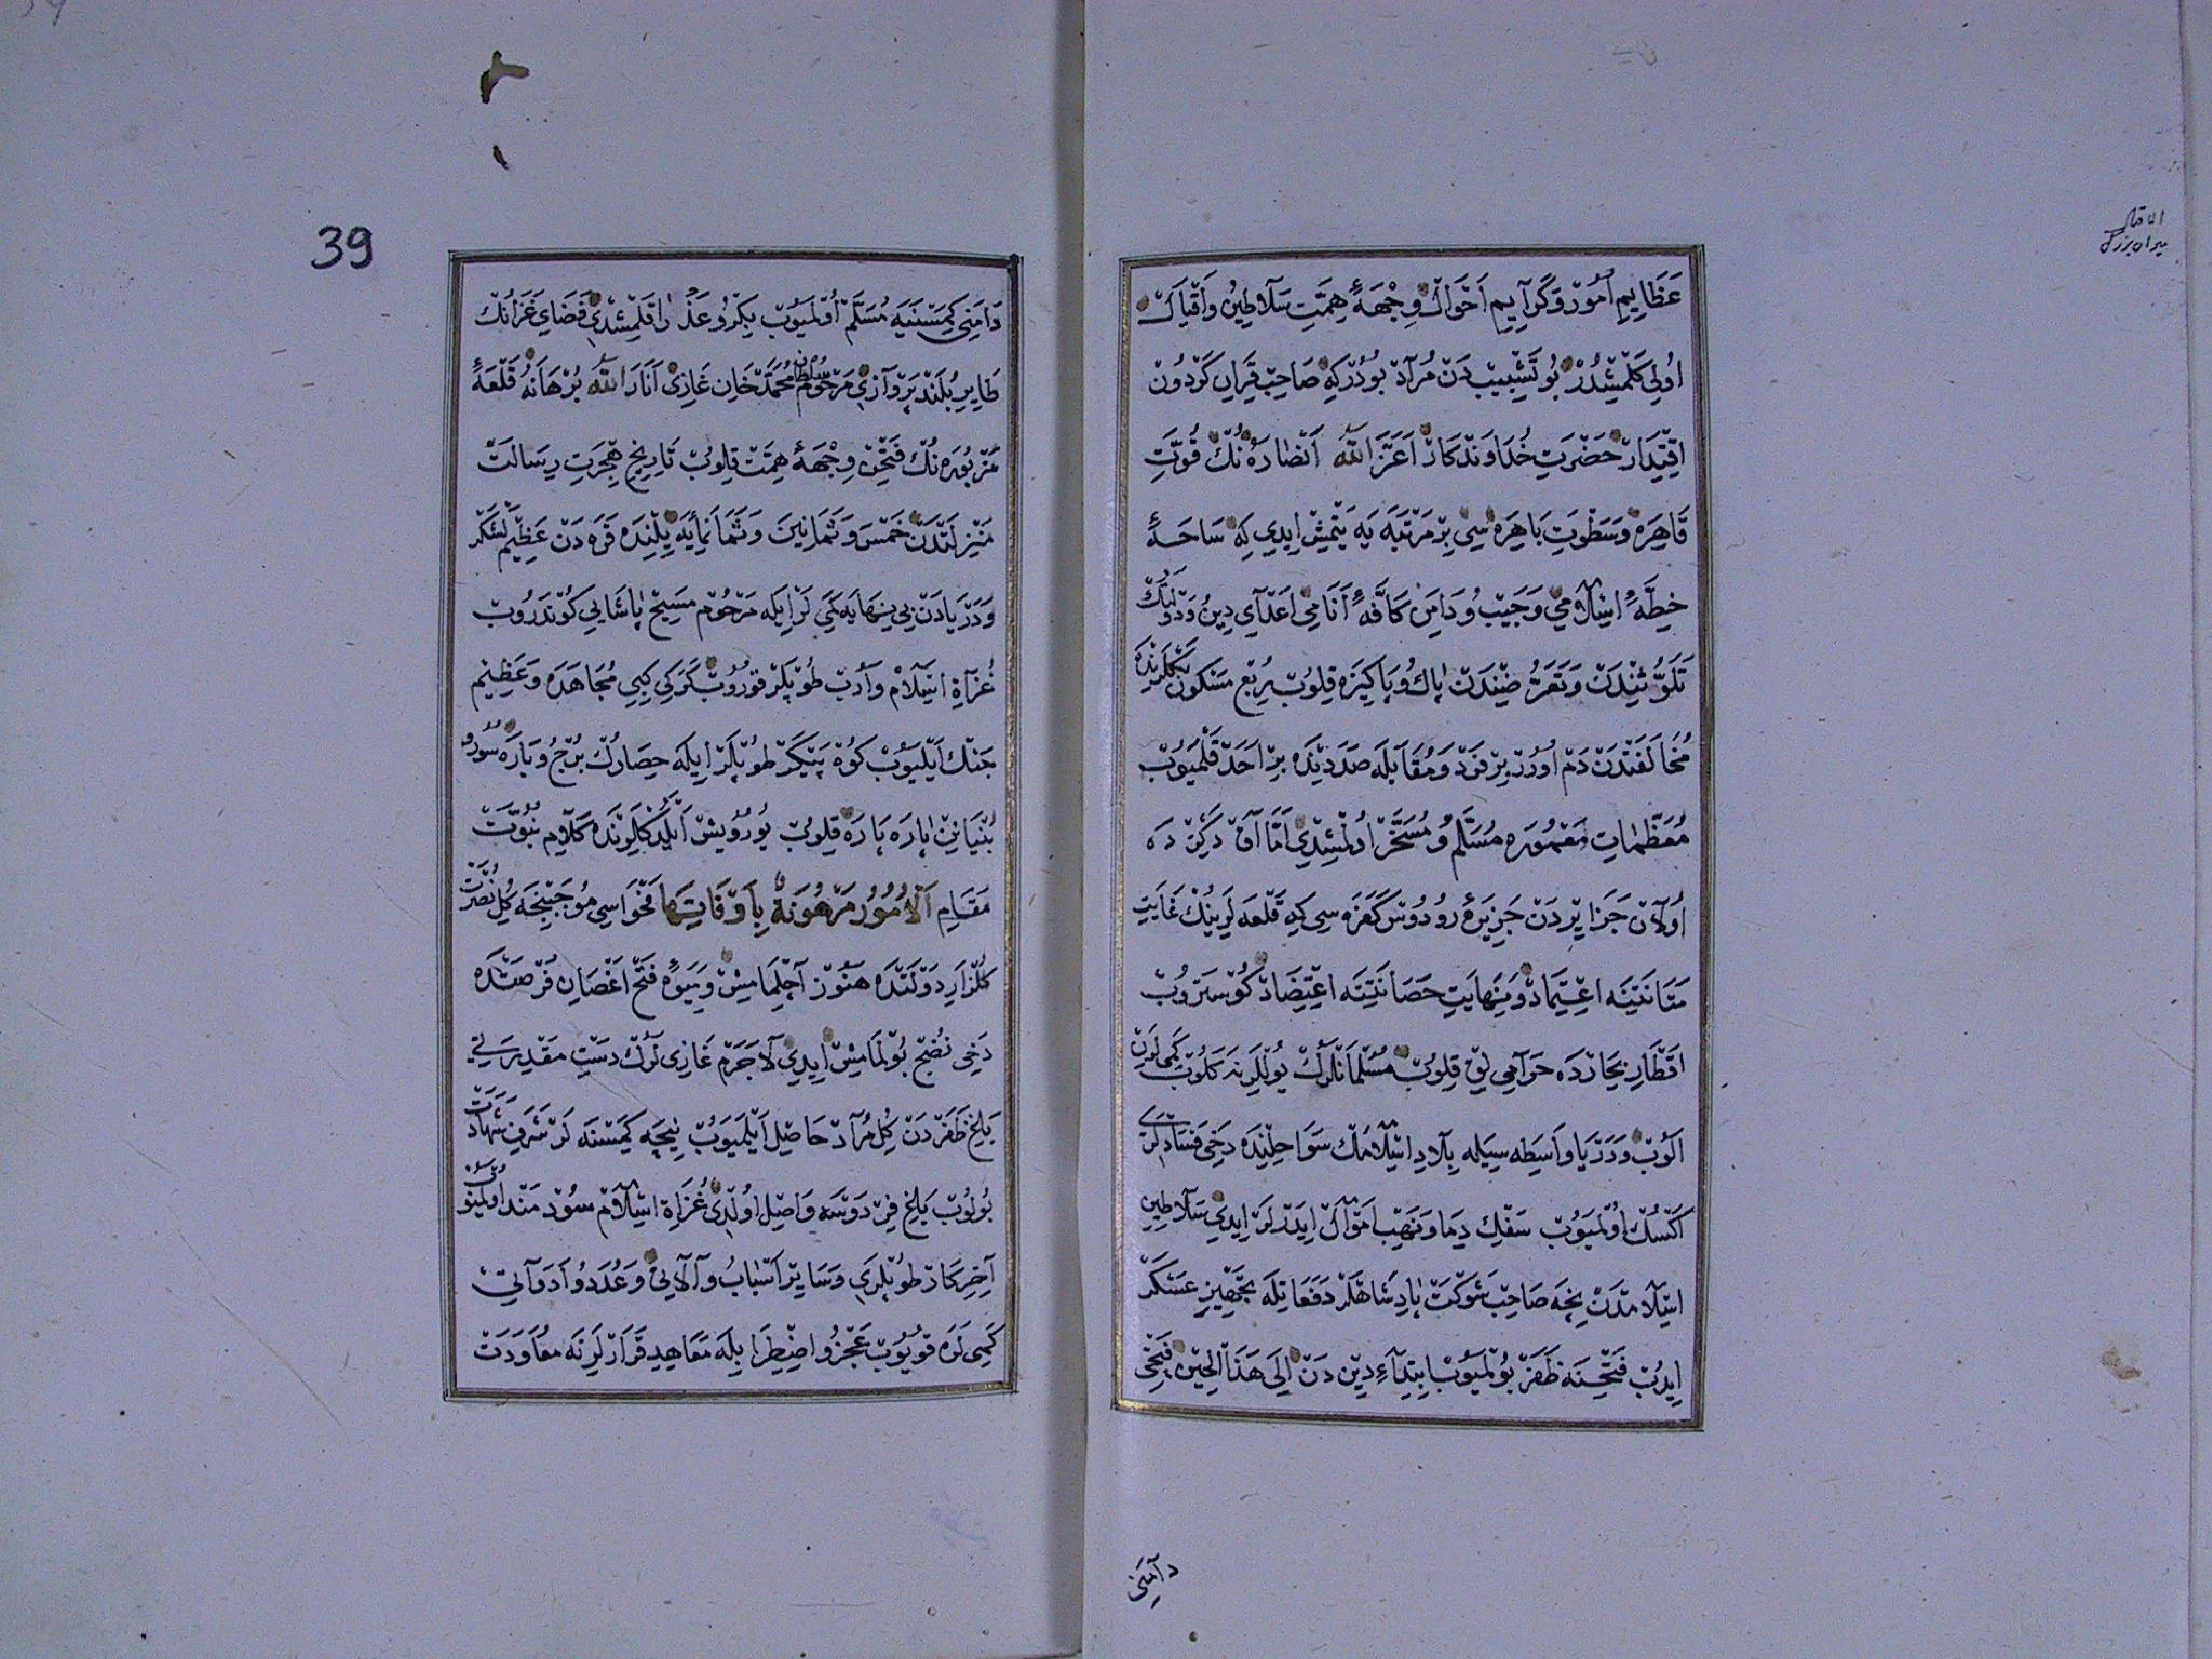 عَظَايِمِ اُمُورْ وَكَرَآيِمِ اَحْوَالْ وِجْهَهٔ هِمَّتِ سَلَاطِينْ وَاَقْيَالْ
اُولِى كَلْمِشْدُرْ بُو تَشْبِيبْ دَنْ مُرَآدْ بُودُرْكِهْ صَاحِبْ قِرَانِ كَرْدُونْ
اِقْتِدَارْ حَضْرَتِ خُدَاوَنْدْكَارْ اَعَزَّ اللهُ اَنْصَارَهُ نُكْ قُوَّتِ
قَاهِرَهْ وَسَطْوَتِ بَاهِرَهْ سِى بِرْ مَرْتَبَهَ يَهْ يَتْمِشْ اِيدِى كِهْ سَاحَهٔ
خِطَّهٔ اِسْلَامِى وَجَيْبْ وُ دَامَنِ كَافَّهٔ اَنَامِى اَعْدَآىِ دِينْ وَدَوْلَتُكْ
تَلَوُّثِنْدَنْ وَتَعَرُّضِنْدَنْ پَاكْ وُ پَاكِيزَهْ قِلُوبْ رُبْعِ مَسْكُونْ بَكْلَرِنْدَهْ
مُخَالَفَتْدَنْ دَمْ اُورُرْ بِرْ فَرْدْ وَمُقَابَلَهْ صَدَدِنْدَهْ بِرْ اَحَدْ قَلْمَيُوبْ
مُعَظَّمَاتِ مَعْمُورَهْ مُسَلَّمْ وُ مُسَخَّرْ اُولْمِشِدِى اَمَّا آقْ دَكِزْ دَهْ
اُولَانْ جَزَايِرْ دَنْ جَزِيرَهٔ رُودُوسْ كَفَرَهْ سِى كِهْ قَلْعَهْ لَرِينُكْ غَايَتِ
مَتَانَتِينَهْ اِعْتِمَادْ وَنِهَايَتِ حَصَانَتِنَهْ اِعْتِضَادْ كُوسْتَرُوبْ
اَقْطَارِ بِحَارْدَهْ حَرَآمِى لِقْ قِلُوبْ مُسُلْمَانْلَرُكْ يُولْلَرِنَهْ كَلُوبْ كَمِى لَرِنْ
اَلُوبْ وَدَرْيَا وَاسِطَهْ سِيلَهْ بِلَادِ اِسْلَامُكْ سَوَاحِلِنْدَهْ دَخِى فَسَادْلَرِى
اَكْسُكْ اُولْمَيُوبْ سَفْكِ دِمَا وَنَهْبِ اَمْوَالْ اِيدَرْ لَرْ اِيدِى سَلَاطِينِ
اِسْلَامْدَنْ نِجَهْ صَاحِبْ شَوْكَتْ پَادِشَاهْلَرْ دَفَعَاتِلَهْ تَجْهِيزِ عَسْكَرْ
اِيدُبْ فَتْحِنَهْ ظَفَرْ بُولْمَيُوبْ اِبْتِدَآءِ دِينْ دَنْ اِلَى هَذَا الْحِينْ فَتْحِى
دَآمَنِى
39
دَامَنِى كِمْسَنَيَهْ مُسَلَّمْ اُولْمَيُوبْ بِكْرُ وعَذْرَا قَلْمِشْدِى فَضَاىِ غَزَانُكْ
طَايِرِ بُلَنْدْ پَرْوَآزِى مَرْحُومْ سُلْطَانْ مُحَمَّدْ خَانِ غَازِى اَنَارَ اللهُ بُرْهَانَهُ قَلْعَهٔ
مَزْبُورَهْ نُكْ فَتْحِنْ وِجْهَهٔ هِمَّتْ قِلُوبْ تَارِيخِ هِجْرَتِ رِسَالَتْ
مَنْزِلَتْدَنْ خَمْسَ وَثَمَانِينَ وَثَمَانَمِايَهْ يِلِنْدَهْ قَرَهْ دَنْ عَظِيمْ لَشْكَرْ
وَدَرْيَادَنْ بِى نِهَايَهْ كَمِى لَرْ اِيلَهْ مَرْحُومْ مَسِيحْ پَاشَايِى كُونْدَرُوبْ
غُزَآةِ اِسْلَامْ وَارُبْ طُوپْلَرْ قُورُوبْ كَرَكِى كِبِى مُجَاهَدَهْ وَعَظِيمْ
جَنْكْ اَيْلَيُوبْ كُوهْ پَيْكَرْ طُوپْلَرْ اِيلَهْ حِصَارُكْ بُرْجُ وبَارَهْ سُورْ وُ
بُنْيَانِنْ پَارَهْ پَارَهْ قِلُوبْ يُورُويِشْ اَيْلَدِكْلَرِنْدَهْ كَلَامِ نُبُوَّتْ
مَقَامِ اَلْاُمُورُ مَرْهُونَةٌ بِاَوْقَاتِهَا فَحْوَاسِى مُوجَبِنْجَهْ كُلِ نُصْرَتْ
كُلْزَارِ دَوْلَتْدَهْ هَنُوزْ آچِلْمَامِشْ وَمِيوَهٔ فَتْحْ اَغْصَانِ فُرْصَتْدَهْ
دَخِى نُضْجْ بُولْمَامِشْ اِيدِى لَاجَرَمْ غَازِى لَرُكْ دَسْتِ مَقْدِرَتِى
بَاغِ ظَفَرْدَنْ كُلِ مُرَآدْ حَاصِلْ اَيْلَمَيُوبْ نِيجَهْ كِمَسْنَهْ لَرْ شَرَفِ شَهَادَتْ
بُولُوبْ بَاغِ فِرْدَوْسَهْ وَاصِلْ اُولْدِى غُزَاةِ اِسْلَامْ سُودْ مَنْدْ اُولْمَيُوبْ
آخِرِ كَارْ طُوپْلَرِى وَسَايِرْ اَسْبَابْ وُ آلَاتِى وَعُدَدْ وُ اَدَوَاتِى
كَمِى لَرَهْ قُويُوبْ عَجْزُ وِاضْطِرَابِلَهْ مَعَاهِدِ قَرَارْلَرِنَهْ مُعَاوَدَتْ